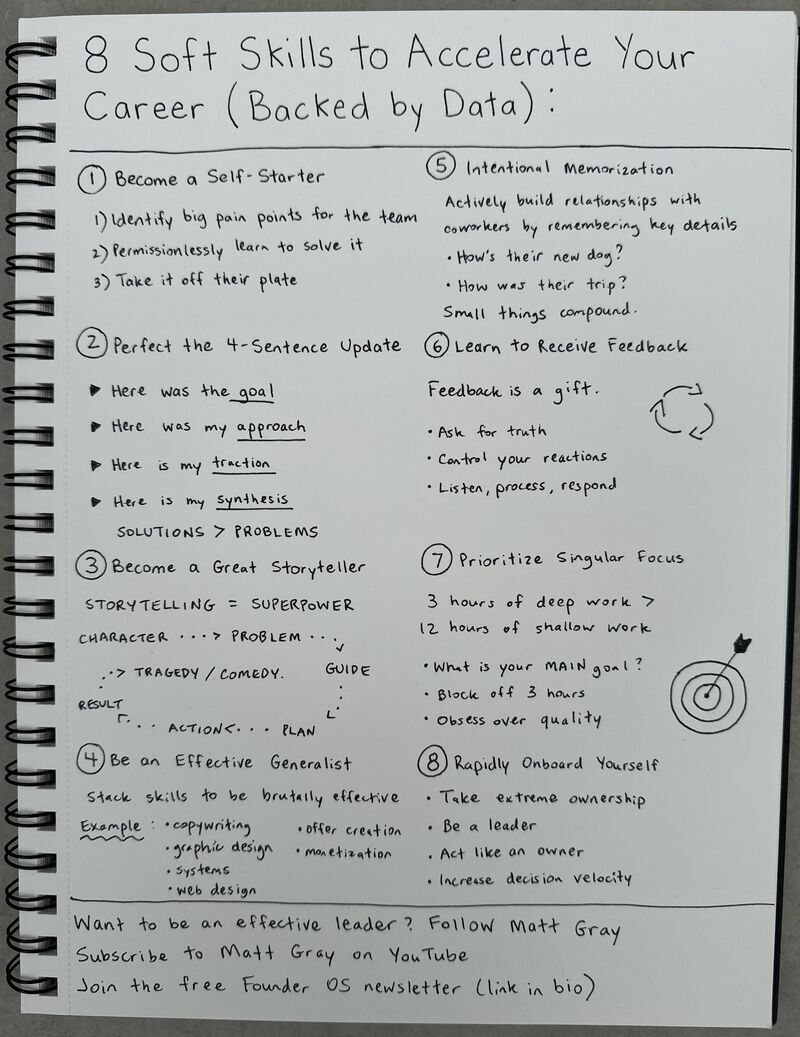 8 Soft Skills to Accelerate Your
Career (Backed by Data):
1 Become a Self-Starter
1) Identify big pain points for the team
2) Permissionlessly learn to solve it
3) Take it off their plate
2 Perfect the 4-Sentence Update
▶ Here was the goal
▶ Here was my approach
▶ Here is my traction
▶ Here is my synthesis
SOLUTIONS > PROBLEMS
3 Become a Great Storyteller
STORYTELLING = SUPERPOWER
CHARACTER ···> PROBLEM ···
GUIDE
PLAN
ACTION <···
RESULT
··> TRAGEDY / COMEDY.
4 Be an Effective Generalist
Stack skills to be brutally effective
Example:
• copywriting
• graphic design
• systems
• web design
• offer creation
• monetization
5 Intentional Memorization
Actively build relationships with
coworkers by remembering key details
• How's their new dog?
• How was their trip?
Small things compound.
6 Learn to Receive Feedback
Feedback is a gift.
• Ask for truth
• Control your reactions
• Listen, process, respond
7 Prioritize Singular Focus
3 hours of deep work >
12 hours of shallow work
• What is your MAIN goal?
• Block off 3 hours
• Obsess over quality
8 Rapidly Onboard Yourself
• Take extreme ownership
• Be a leader
• Act like an owner
• Increase decision velocity
Want to be an effective leader? Follow Matt Gray
Subscribe to Matt Gray on YouTube
Join the free Founder OS newsletter (link in bio)